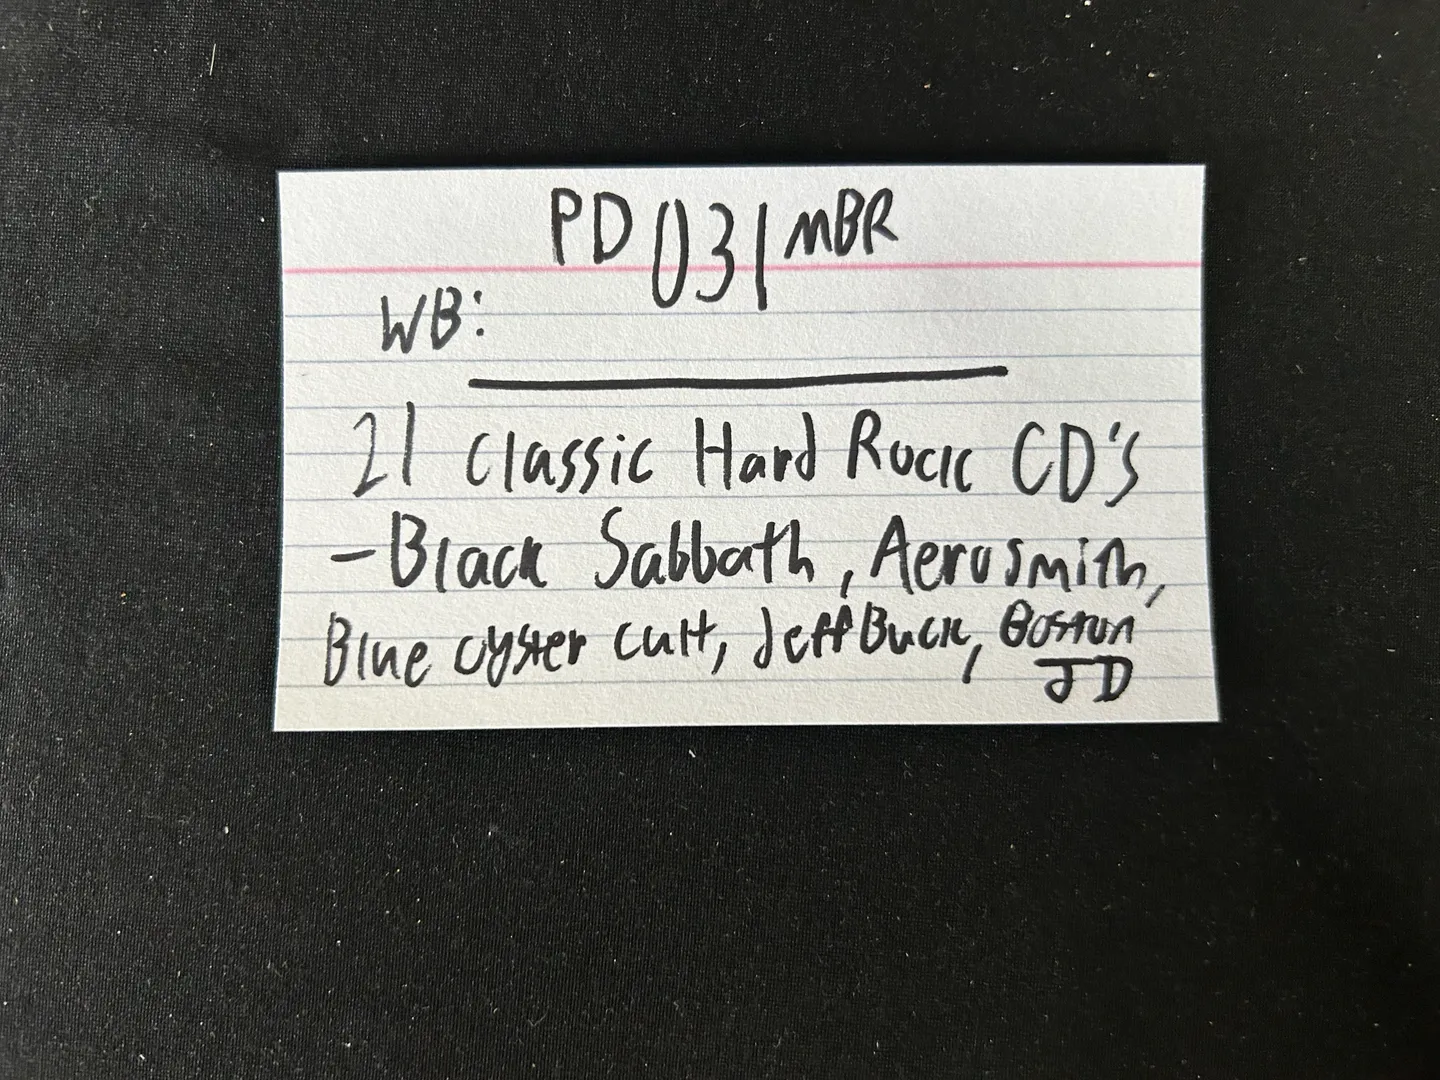 PD 031 MBR
WB:
21 Classic Hard Rock CD's
- Black Sabbath, Aerosmith,
Blue oyster cult, Jeff Buck, Boston
JD